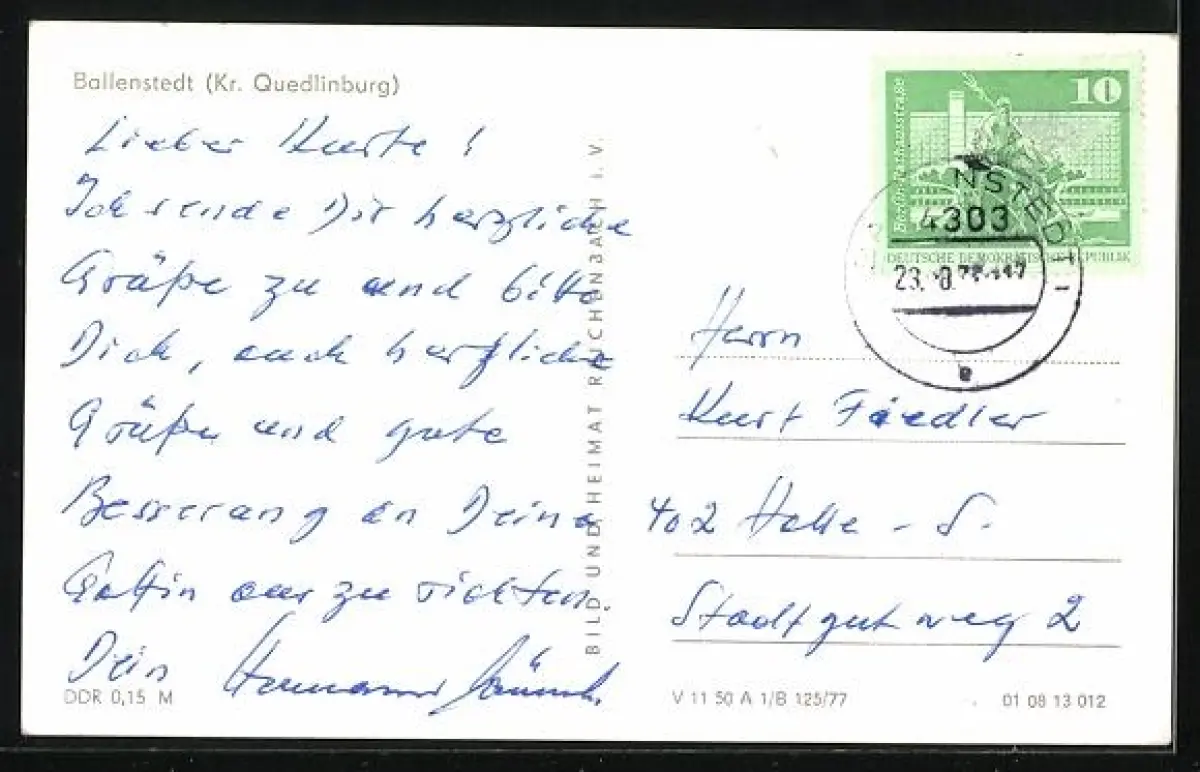 Ballenstedt (Kr. Quedlinburg)
Lieber Kurte!
Ich sende Dir herzliche
Grüße zu und bitte
Dich, auch herzliche
Grüße und gute
Besserung an Deine
Gattin aus zu richten.
Dein Hermann
DDR 0,15 M
BILD UND HEIMAT REICHENBACH I. V.
10
Berlin-Rathausstraße
DEUTSCHE DEMOKRATISCHE REPUBLIK
NSTEDT
4303
23.
e
Herrn
Kurt Fiedler
402 Halle - S.
Stadtgutweg 2
V 11 50 A 1/B 125/77
01 08 13 012